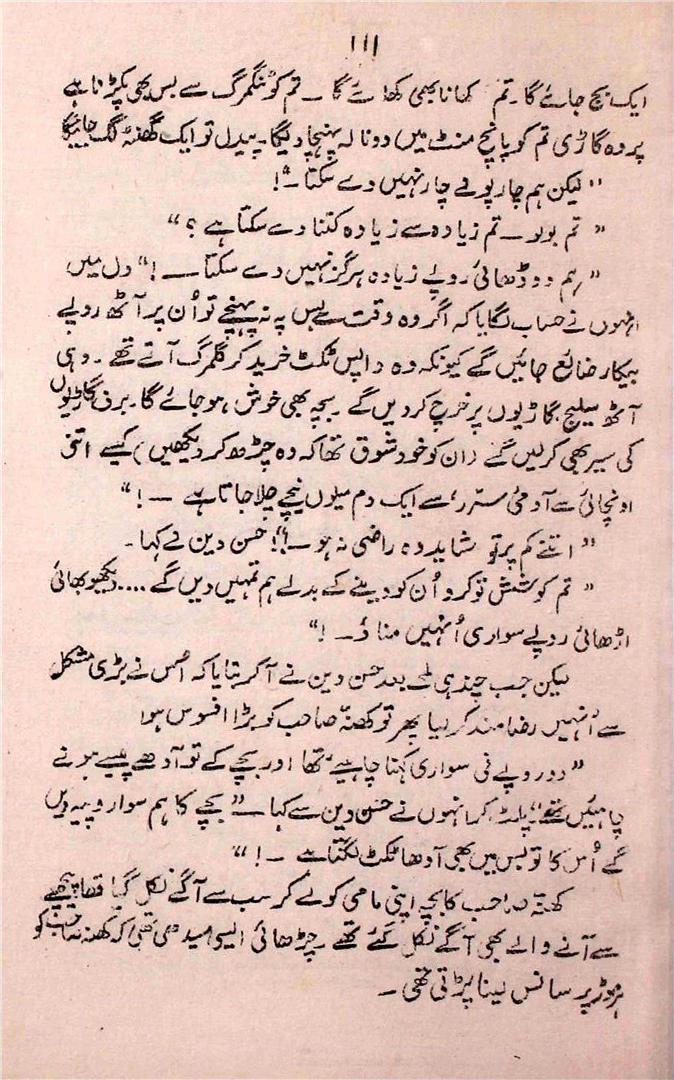 ۱۱۱
ایک بج جائے گا۔ تم کھانا بھی کھائے گا ۔ تم کو ٹنگمرگ سے بس بھی پکڑنا ہے
پر وہ گاڑی تم کو پانچ منٹ میں دو نالہ پہنچا دیگا۔ پیدل تو ایک گھنٹہ لگ جائیگا
" لیکن ہم چار پوپے چار نہیں دے سکتا ۔"!
" تم بولو ۔ تم زیادہ سے زیادہ کتنا دے سکتا ہے ؟ "
" ہم دو ڈھائی روپے زیادہ ہرگز نہیں دے سکتا ــ ! " دل میں
انہوں نے حساب لگایا کہ اگر وہ وقت سے بس پہ نہ پہنچے تو اُن پر آٹھ روپے
بیکار ضائع جائیں گے کیونکہ وہ واپس ٹکٹ خرید کر گلمرگ آتے تھے ۔ وہی
آٹھ سلیج گاڑیوں پر خرچ کر دیں گے ۔ بچہ بھی خوش ہو جائے گا۔ برف گاڑیوں
کی سیر بھی کر لیں گے (ان کو خود شوق تھا کہ وہ چڑھ کر دیکھیں) کیسے اتنی
اونچائی سے آدمی سرر سے ایک دم میلوں نیچے چلا جاتا ہے ــ ! "
" اتنے کم پر تو شاید وہ راضی نہ ہو ــ !"! حسن دین نے کہا ۔
" تم کوشش تو کرو اُن کو دینے کے بدلے ہم تمہیں دیں گے .... دیکھو بھائی
اڑھائی روپے سواری اُنہیں مناؤ ۔ ! "
لیکن جب چند ہی لمحے بعد حسن دین نے آکر بتایا کہ اُس نے بڑی مشکل
سے اُنہیں رضا مند کر لیا پھر تو کھنّہ صاحب کو بڑا افسوس ہوا
" دو روپے فی سواری کہنا چاہیے تھا اور بچے کے تو آدھے پیسے ہونے
چاہئیں تھے" پلٹ کر انہوں نے حسن دین سے کہا ــ " بچے کا ہم سوا روپیہ دیں
گے اُس کا تو بس میں بھی آدھا ٹکٹ لگتا ہے ــ ! "
کھنّہ صاحب کا بچہ اپنی مامی کو لے کر سب سے آگے نکل گیا تھا پیچھے
سے آنے والے بھی آگے نکل گئے تھے ۔ چڑھائی ایسی سیدھی تھی کہ کھنہ صاحب کو
ہر موڑ پر سانس لینا پڑتی تھی ۔